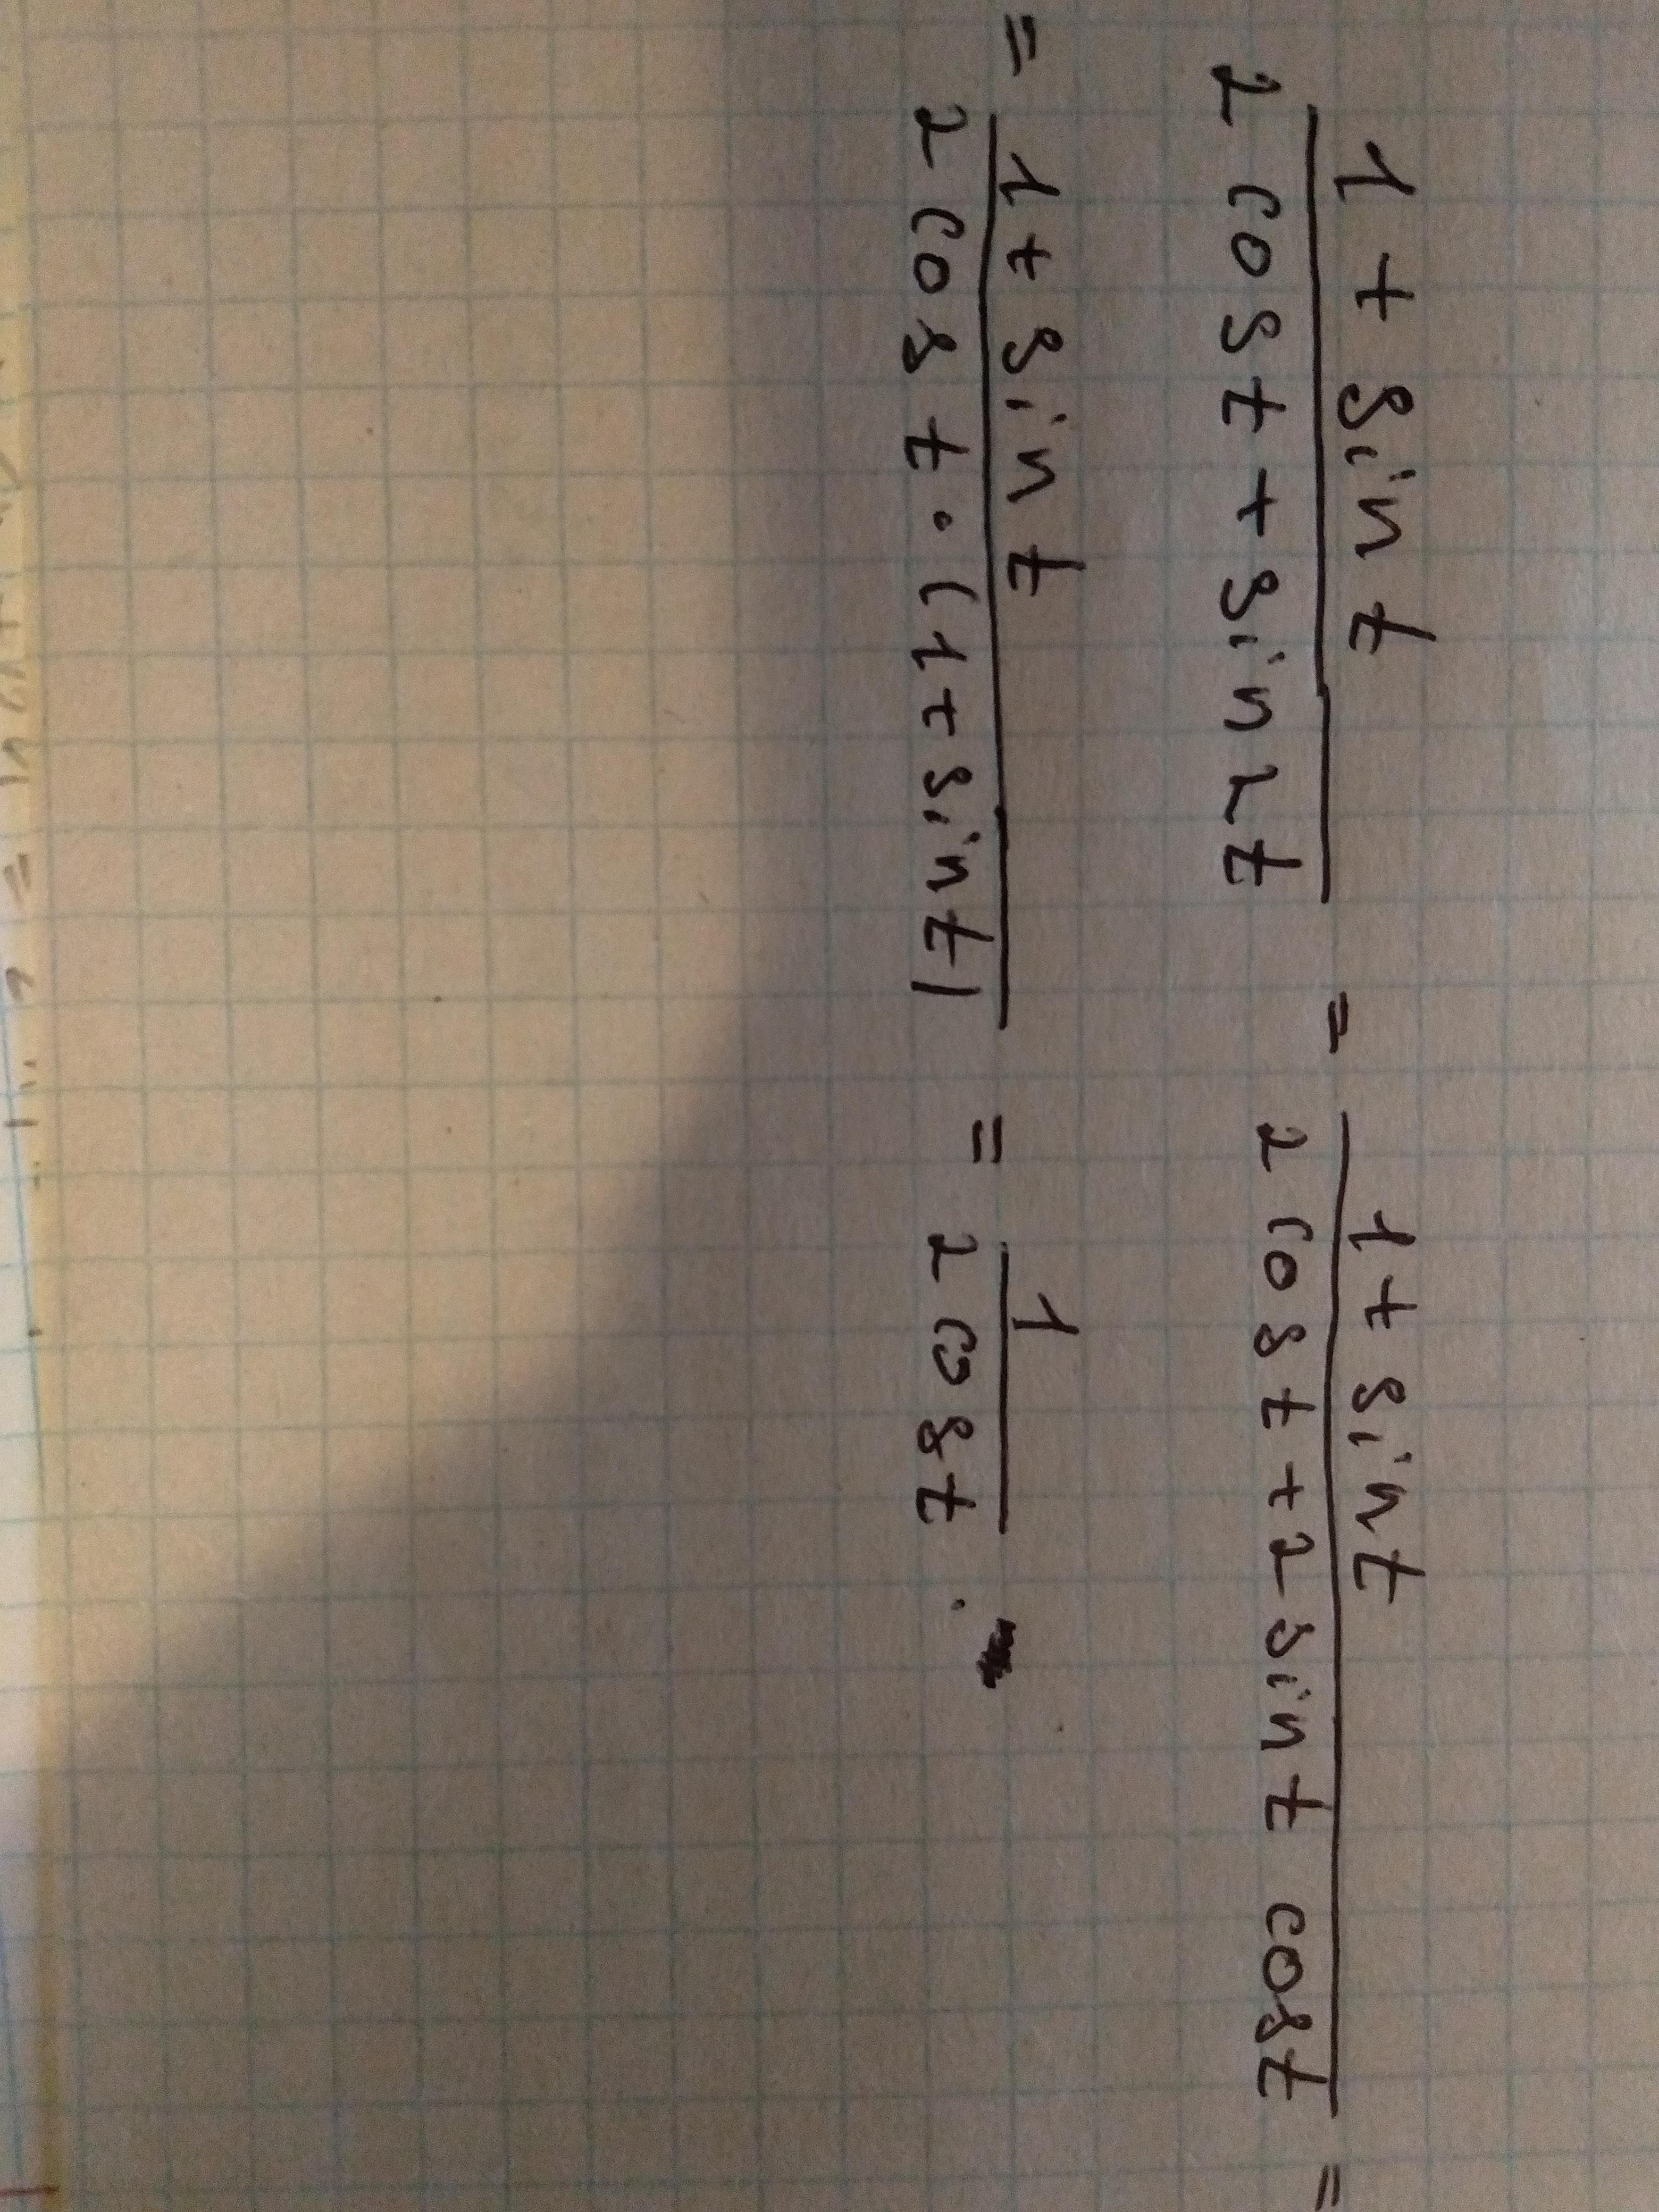 (1 + sin t)/(2 cos t + sin 2t) = (1 + sin t)/(2 cos t + 2 sin t cos t) =
= (1 + sin t)/(2 cos t · (1 + sin t)) = 1/(2 cos t) .